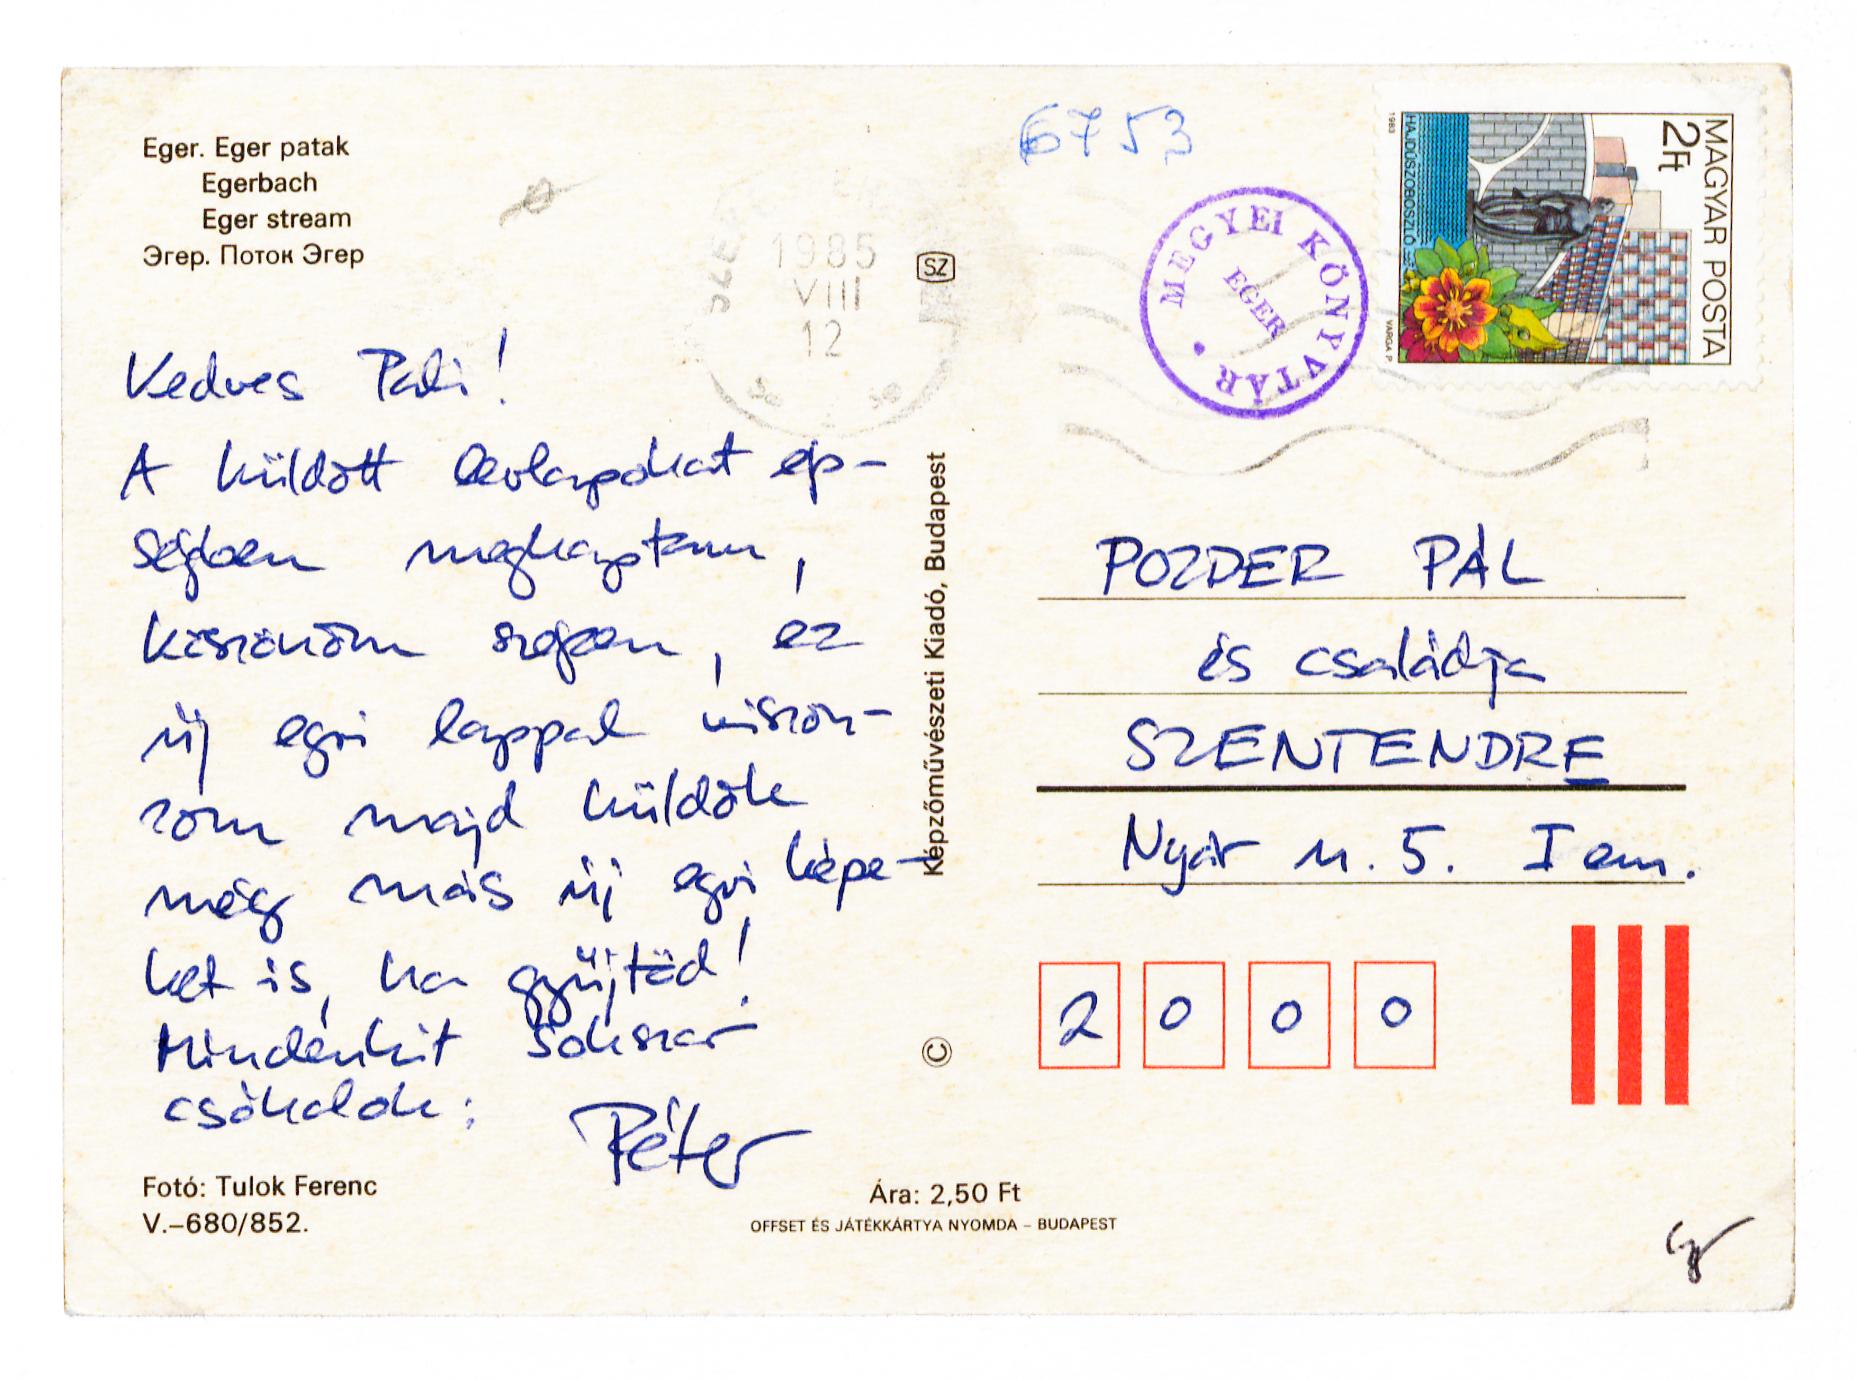 Eger. Eger patak
Egerbach
Eger stream
Эгер. Поток Эгер
6753
1985
VIII
12
MEGYEI KÖNYVTÁR
EGER
MAGYAR POSTA
2Ft
HAJDÚSZOBOSZLÓ
1983
VARGA P
SZ
Kedves Pali!
A küldött levlapokat ép-
ségben megkaptam,
köszönöm szépen, ez
új egri lappal viszon-
zom majd küldök
még más új egri képe-
ket is, ha gyűjtöd!
Mindenkit sokszor
csókolok:
Péter
Képzőművészeti Kiadó, Budapest
©
POZDER PÁL
és családja
SZENTENDRE
Nyár u. 5. I em.
2000
Fotó: Tulok Ferenc
V.–680/852.
Ára: 2,50 Ft
OFFSET ÉS JÁTÉKKÁRTYA NYOMDA – BUDAPEST